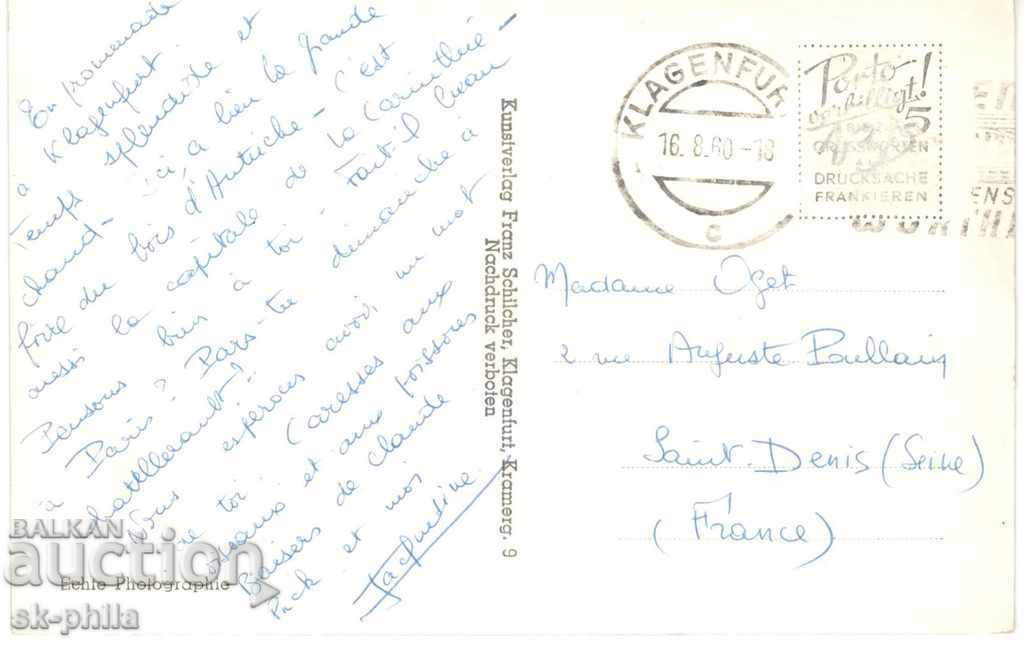 En promenade
à Klagenfurt
Temps splendide et
chaud - ici, a lieu la grande
foire du bois d'Autriche - C'est
aussi la capitale de la Carinthie -
Pensons bien à toi. Fait-il beau
à Paris? Pars-tu dimanche à
Chatellerault?
Nous esperons avoir un mot
de toi. Caresses aux
oiseaux et aux poissons
Baisers de Claude
Puck et moi
Jacqueline
Echte Photographie
Kunstverlag Franz Schilcher, Klagenfurt, Kramerg. 9
Nachdruck verboten
KLAGENFUR
16.8.60-18
c
Porto
verbilligt!
5
GRUSSWORTEN
ALS
DRUCKSACHE
FRANKIEREN
Madame Oget
2 rue Auguste Poullain
Saint-Denis (Seine)
(France)
BALKAN
auction
sk-phila